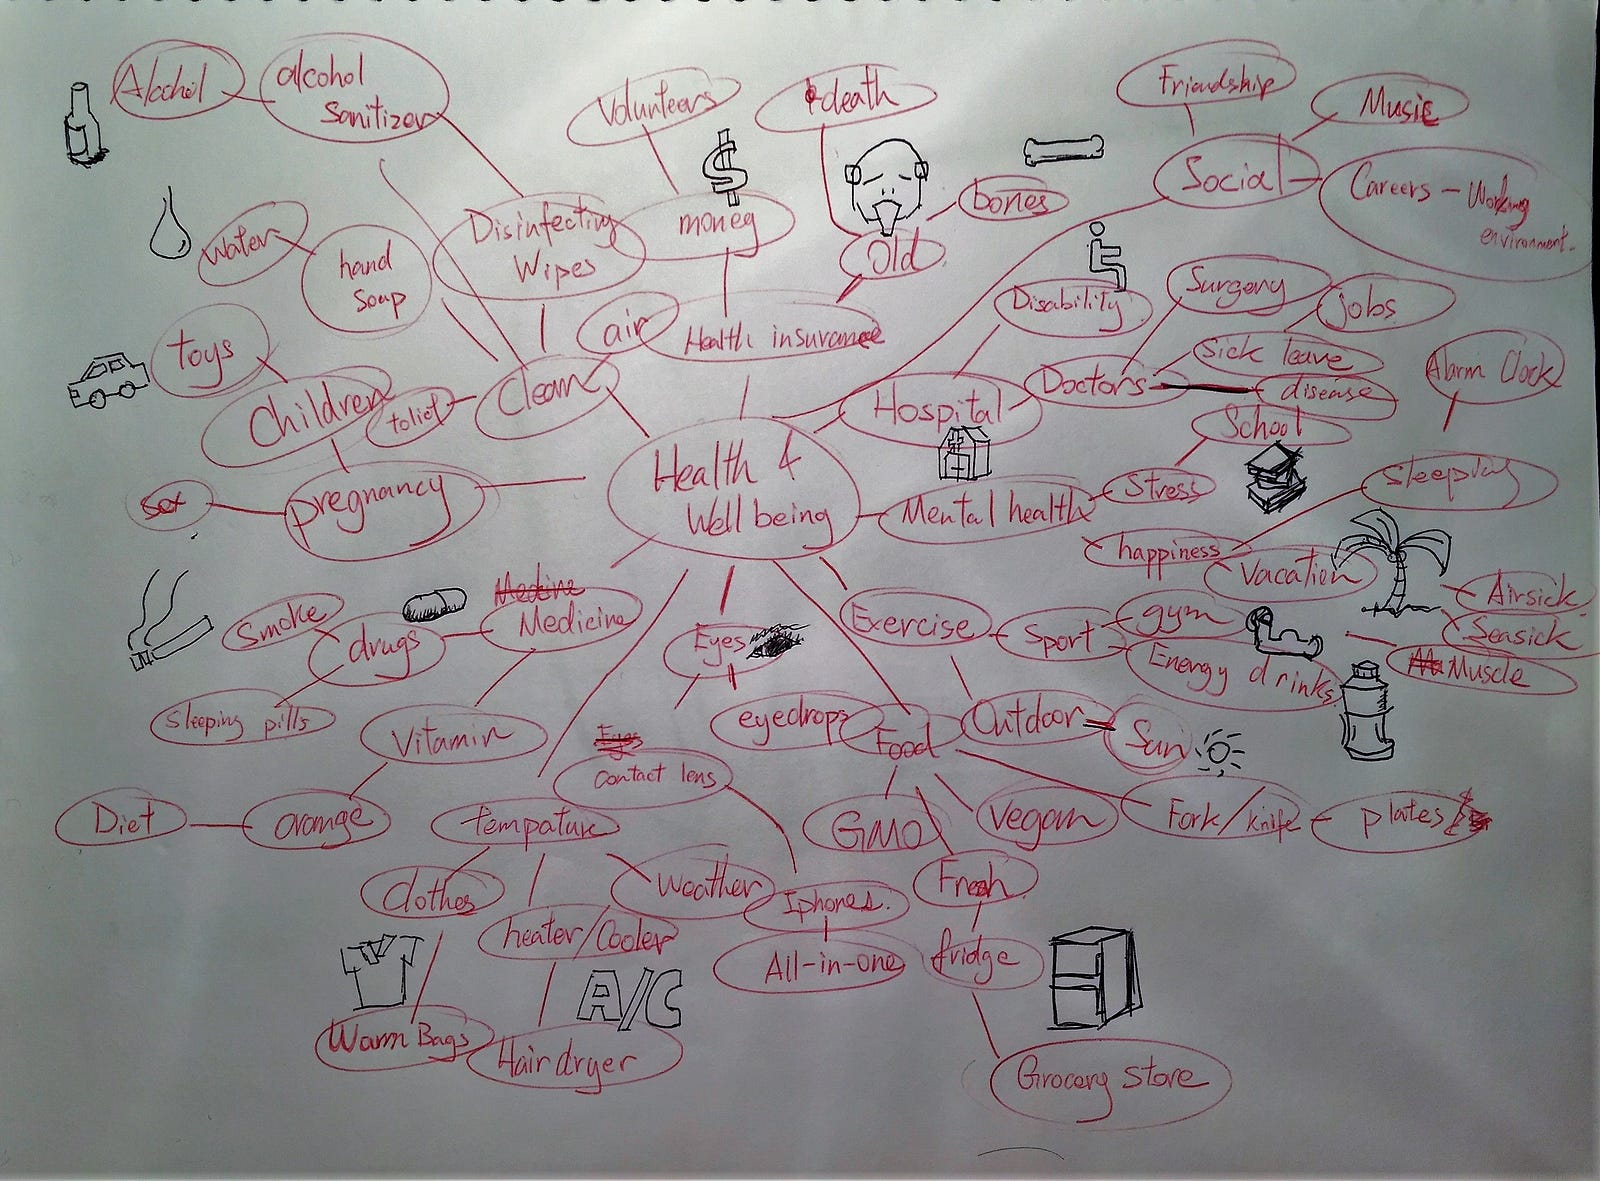 Alcohol
alcohol
Sanitizer
Volunteers
death
Friendship
Music
Social
Careers - Working
environment.
water
hand
Soap
Disinfecting
Wipes
$
money
bones
Old
Disability
Surgery
jobs
toys
air
Health insurance
Sick leave
Alarm Clock
Children
toliet
Clean
Hospital
Doctors
disease
School
sex
pregnancy
Health &
Well being
Mental health
Stress
happiness
Vacation
Airsick
Seasick
Muscle
Smoke
drugs
Medicine
Eyes
Exercise
Sport
gym
Energy drinks
Sleeping pills
Vitamin
eyedrops
Food
Outdoor
Sun
contact lens
Diet
orange
GMO
Vegan
Fork/knife
plates
Clothes
Weather
Iphones.
Fresh
heater/Cooler
All-in-one
fridge
A/C
Warm Bags
Hair dryer
Grocery store